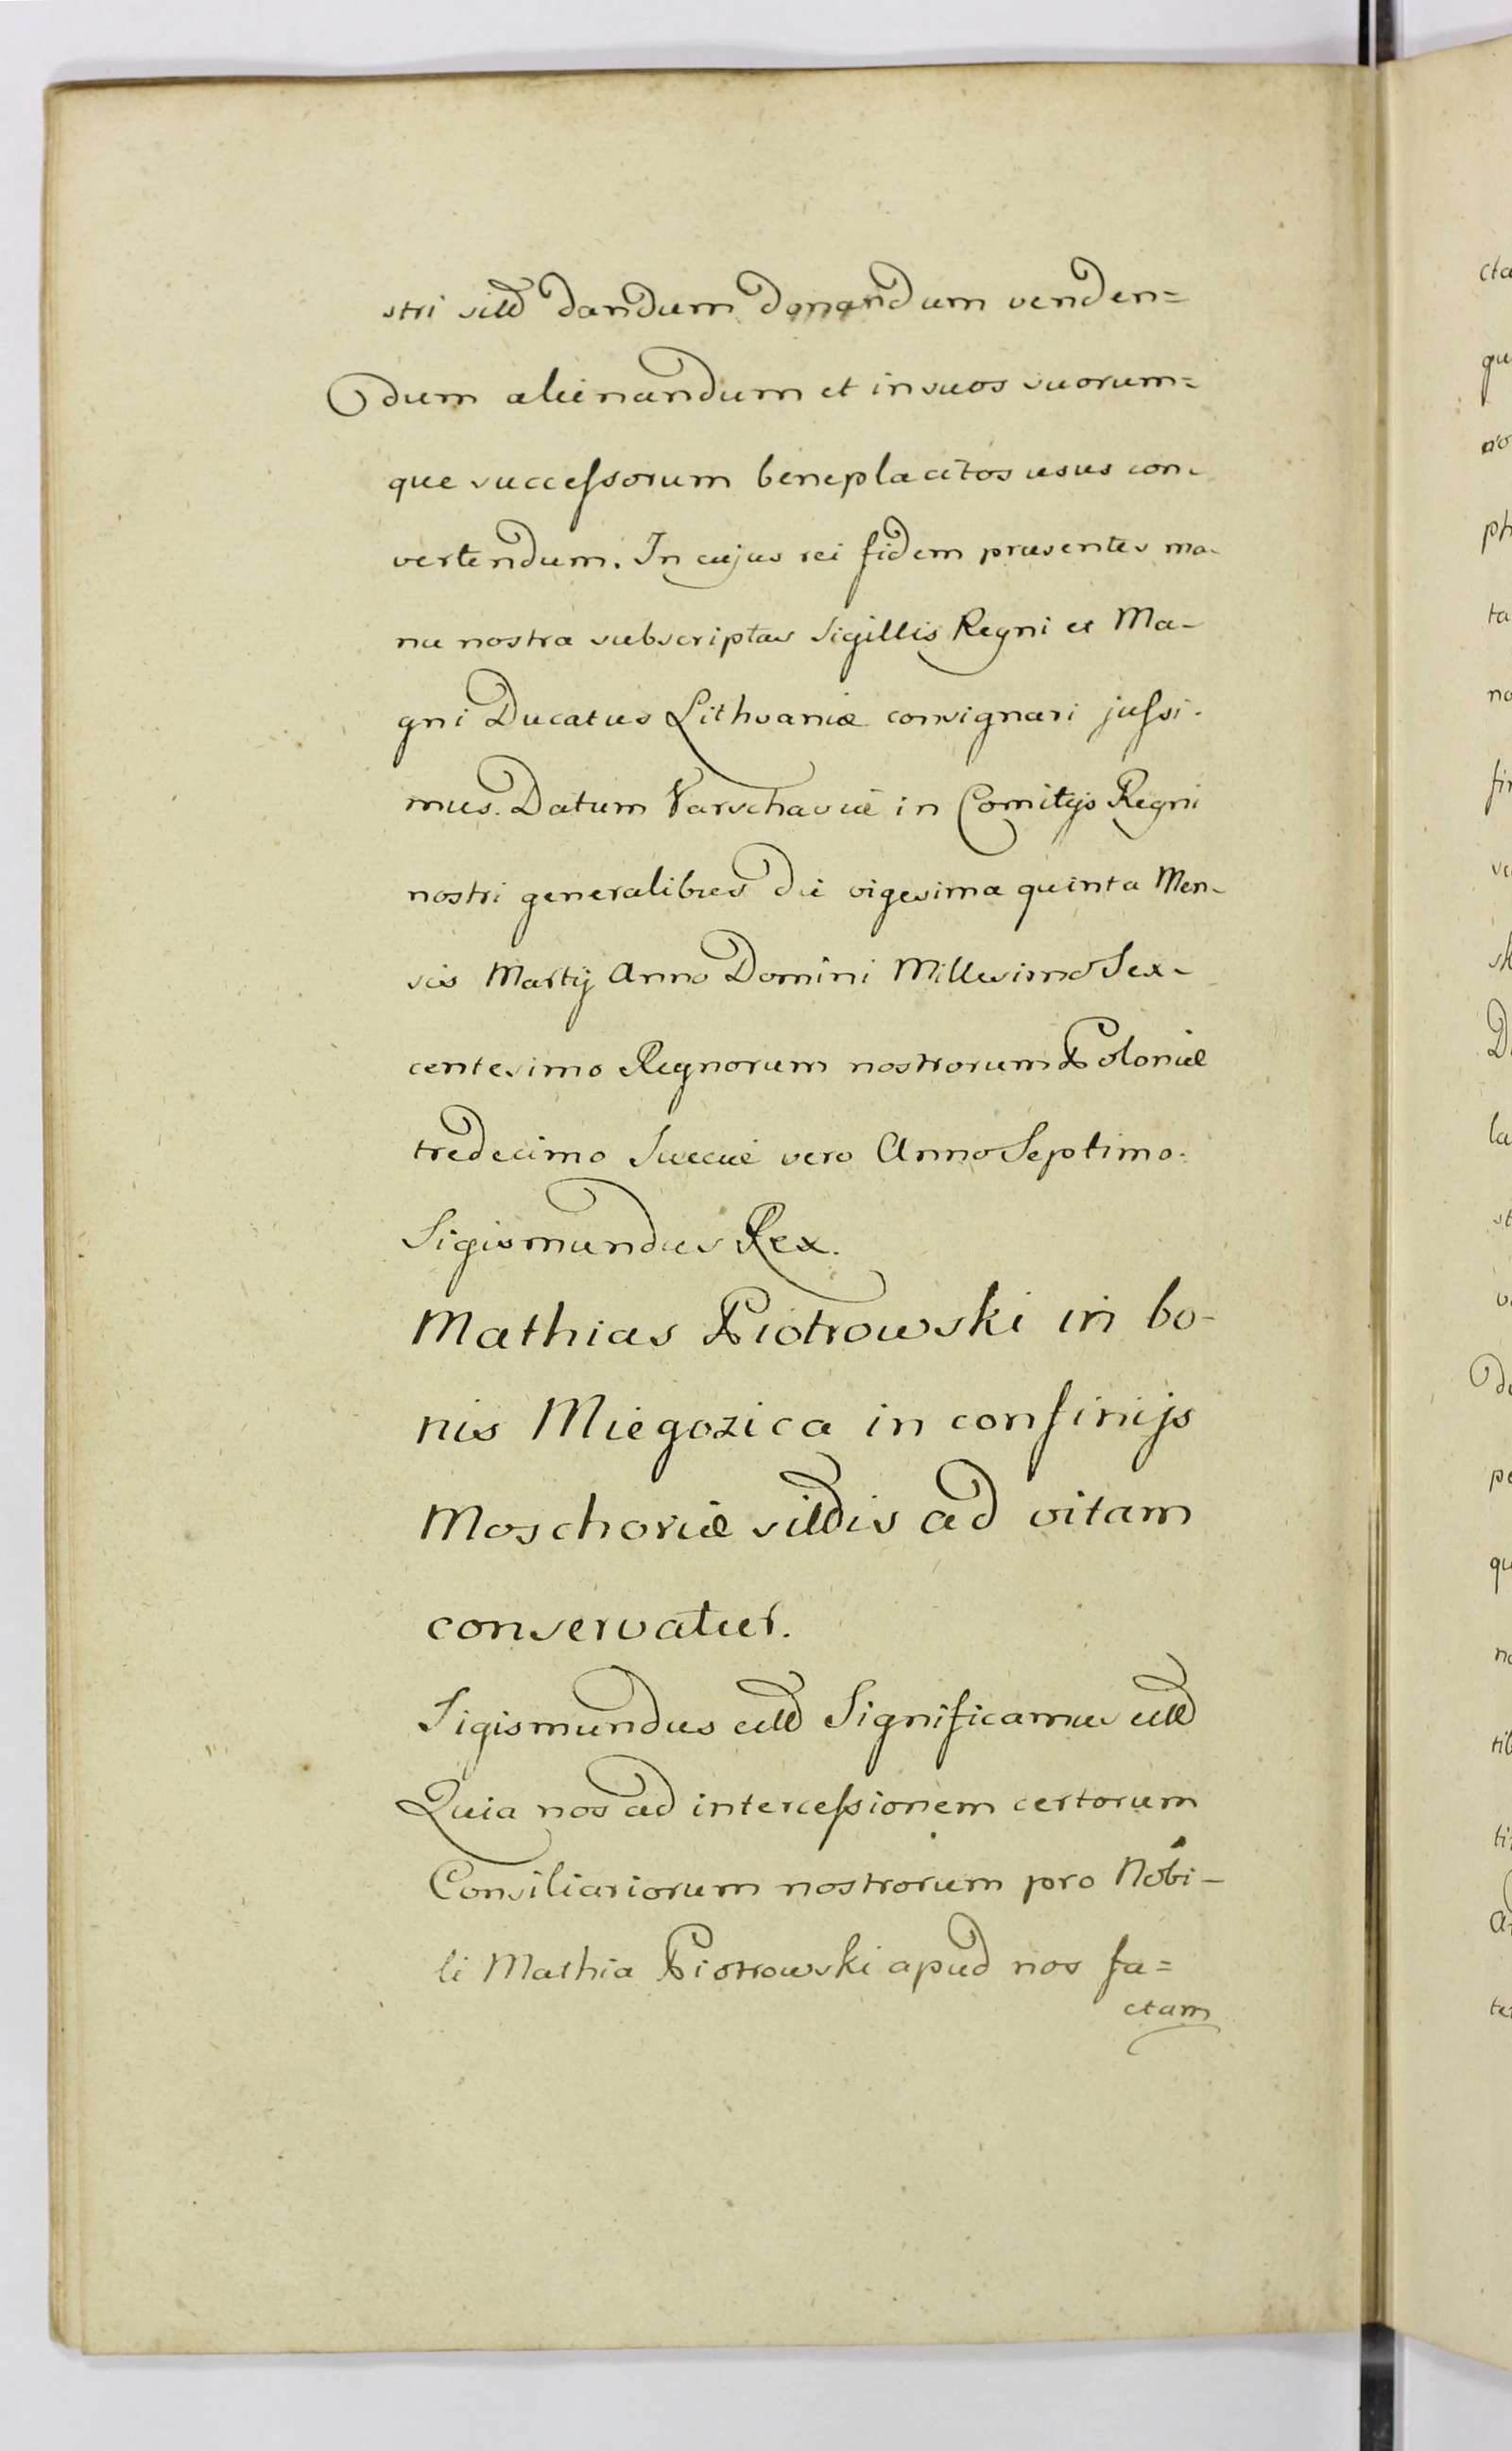 stri dandum donandum venden=
dum alienandum et in suos suorum=
que successorum beneplacitos usus con-
vertendum. In cujus rei fidem præsentes ma-
nu nostra subscriptas Sigillis Regni et Ma-
gni Ducatus Lithvaniæ consignari jussi-
mus. Datum Varschaviæ in Comitijs Regni
nostri generalibus die vigesima quinta Men-
sis Martij Anno Domini Millesimo Sex-
centesimo Regnorum nostrorum Poloniæ
tredecimo Sueciæ vero Anno Septimo.
Sigismundus Rex.
Mathias Piotrowski in bo-
nis Miegozica in confinijs
Moschoviæ sitis ad vitam
conservatur.
Sigismundus Significamus
Quia nos ad intercessionem certorum
Consiliariorum nostrorum pro Nobi-
li Mathia Piotrowski apud nos fa=
ctam